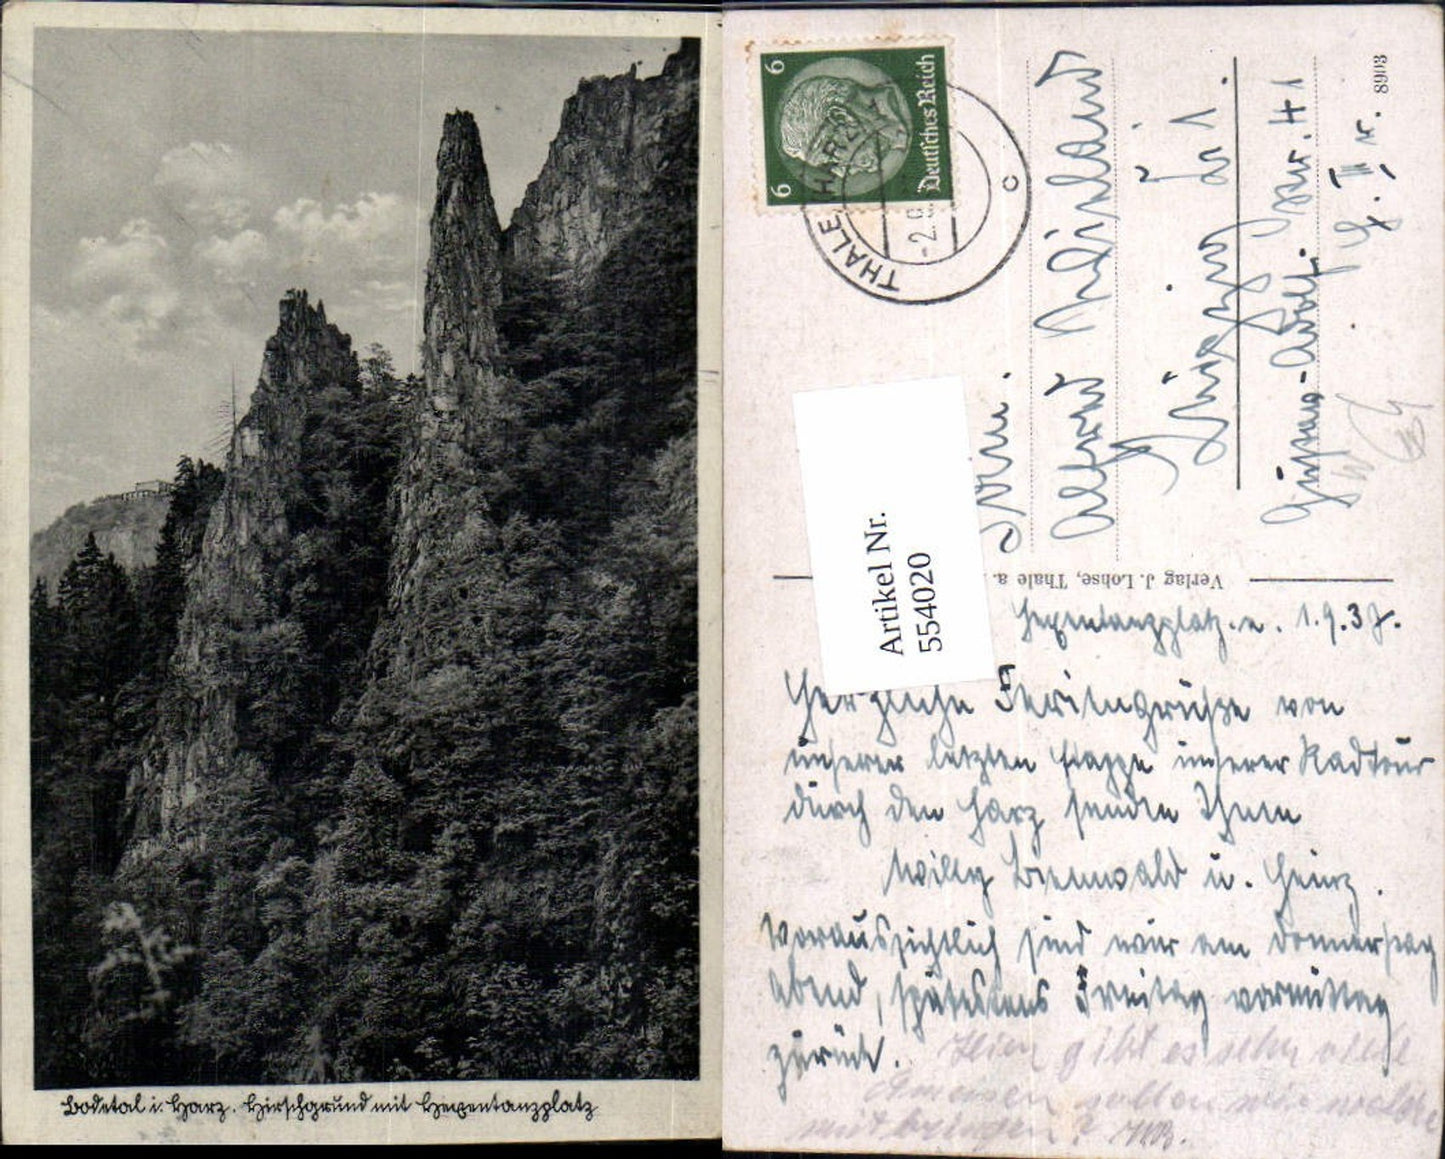 Bodetal i. Harz. Hirschgrund mit Hexentanzplatz
6
6
Deutsches Reich
THALE HARZ
-2.9.
c
Artikel Nr.
554020
Verlag J. Lohse, Thale a.
8903
Alfred
Leipzig
Gustav-Adolf-Str. 41
Hexentanzplatz. 1.9.37.
Herzliche Feriengrüße von
unserer letzten Etappe unserer Radtour
durch den Harz senden Ihnen
Willy u. Heinz.
Voraussichtlich sind wir am Donnerstag
Abend, spätestens Freitag vormittag
zurück.
Hier gibt es sehr viele
Ameisen sollen wir welche
mitbringen?